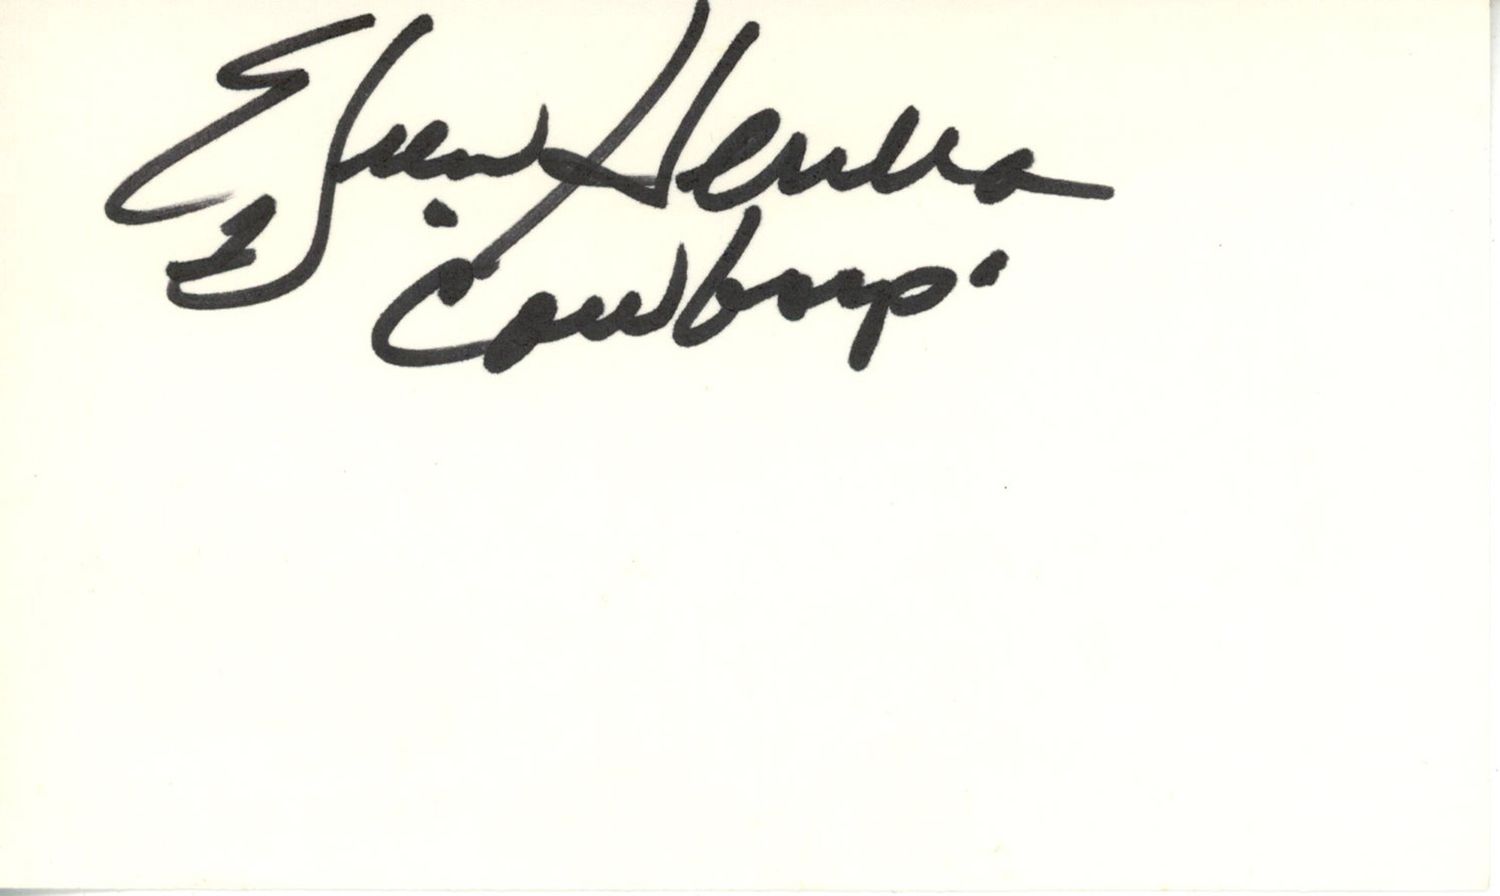 Efren Herrera
"Cowboys"